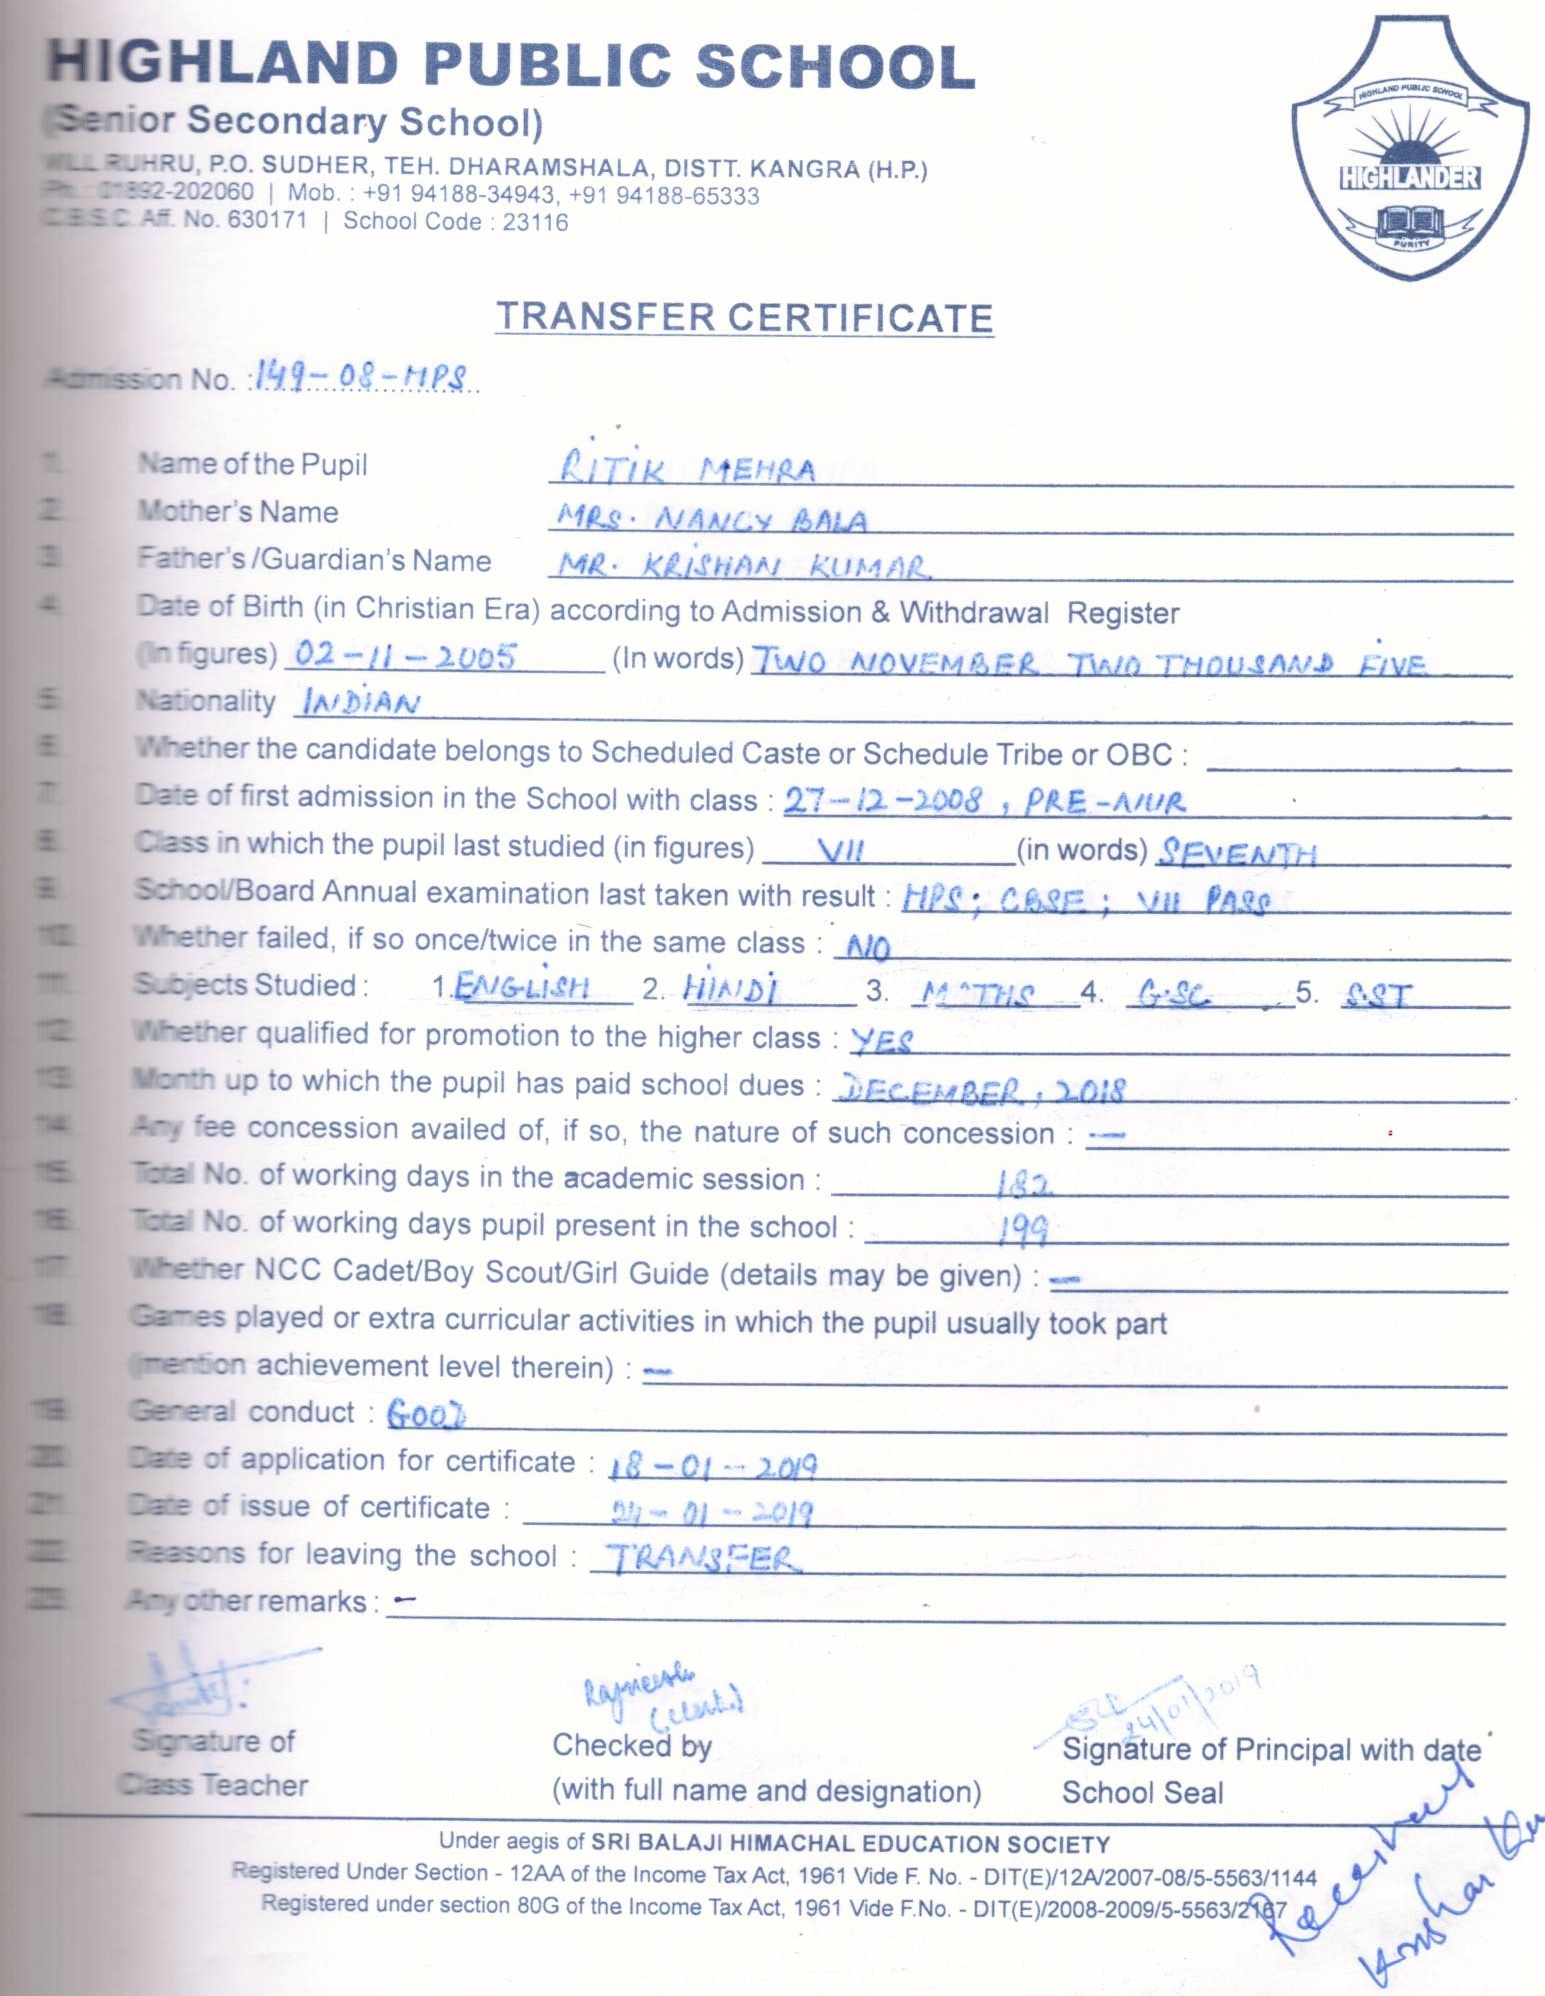 HIGHLAND PUBLIC SCHOOL
(Senior Secondary School)
HIGHLAND PUBLIC SCHOOL
HIGHLANDER
PURITY
WILL RUHRU, P.O. SUDHER, TEH. DHARAMSHALA, DISTT. KANGRA (H.P.)
Ph. : 01892-202060 | Mob. : +91 94188-34943, +91 94188-65333
C.B.S.C. Aff. No. 630171 | School Code : 23116
TRANSFER CERTIFICATE
Admission No. : 149-08-HPS
1. Name of the Pupil RITIK MEHRA
2. Mother's Name MRS. NANCY BALA
3. Father's /Guardian's Name MR. KRISHAN KUMAR
4. Date of Birth (in Christian Era) according to Admission & Withdrawal Register
(In figures) 02-11-2005 (In words) TWO NOVEMBER TWO THOUSAND FIVE
5. Nationality INDIAN
6. Whether the candidate belongs to Scheduled Caste or Schedule Tribe or OBC :
7. Date of first admission in the School with class : 27-12-2008, PRE-NUR
8. Class in which the pupil last studied (in figures) VII (in words) SEVENTH
9. School/Board Annual examination last taken with result : HPS; CBSE; VII PASS
10. Whether failed, if so once/twice in the same class : NO
11. Subjects Studied : 1. ENGLISH 2. HINDI 3. MATHS 4. G.SC 5. S.ST
12. Whether qualified for promotion to the higher class : YES
13. Month up to which the pupil has paid school dues : DECEMBER, 2018
14. Any fee concession availed of, if so, the nature of such concession : —
15. Total No. of working days in the academic session : 182
16. Total No. of working days pupil present in the school : 199
17. Whether NCC Cadet/Boy Scout/Girl Guide (details may be given) : —
18. Games played or extra curricular activities in which the pupil usually took part
(mention achievement level therein) : —
19. General conduct : GOOD
20. Date of application for certificate : 18-01-2019
21. Date of issue of certificate : 24-01-2019
22. Reasons for leaving the school : TRANSFER
23. Any other remarks : -
Rajneesh
24/01/2019
Signature of Checked by Signature of Principal with date
Class Teacher (with full name and designation) School Seal
Under aegis of SRI BALAJI HIMACHAL EDUCATION SOCIETY
Registered Under Section - 12AA of the Income Tax Act, 1961 Vide F. No. - DIT(E)/12A/2007-08/5-5563/1144
Registered under section 80G of the Income Tax Act, 1961 Vide F.No. - DIT(E)/2008-2009/5-5563/2167
Krishan